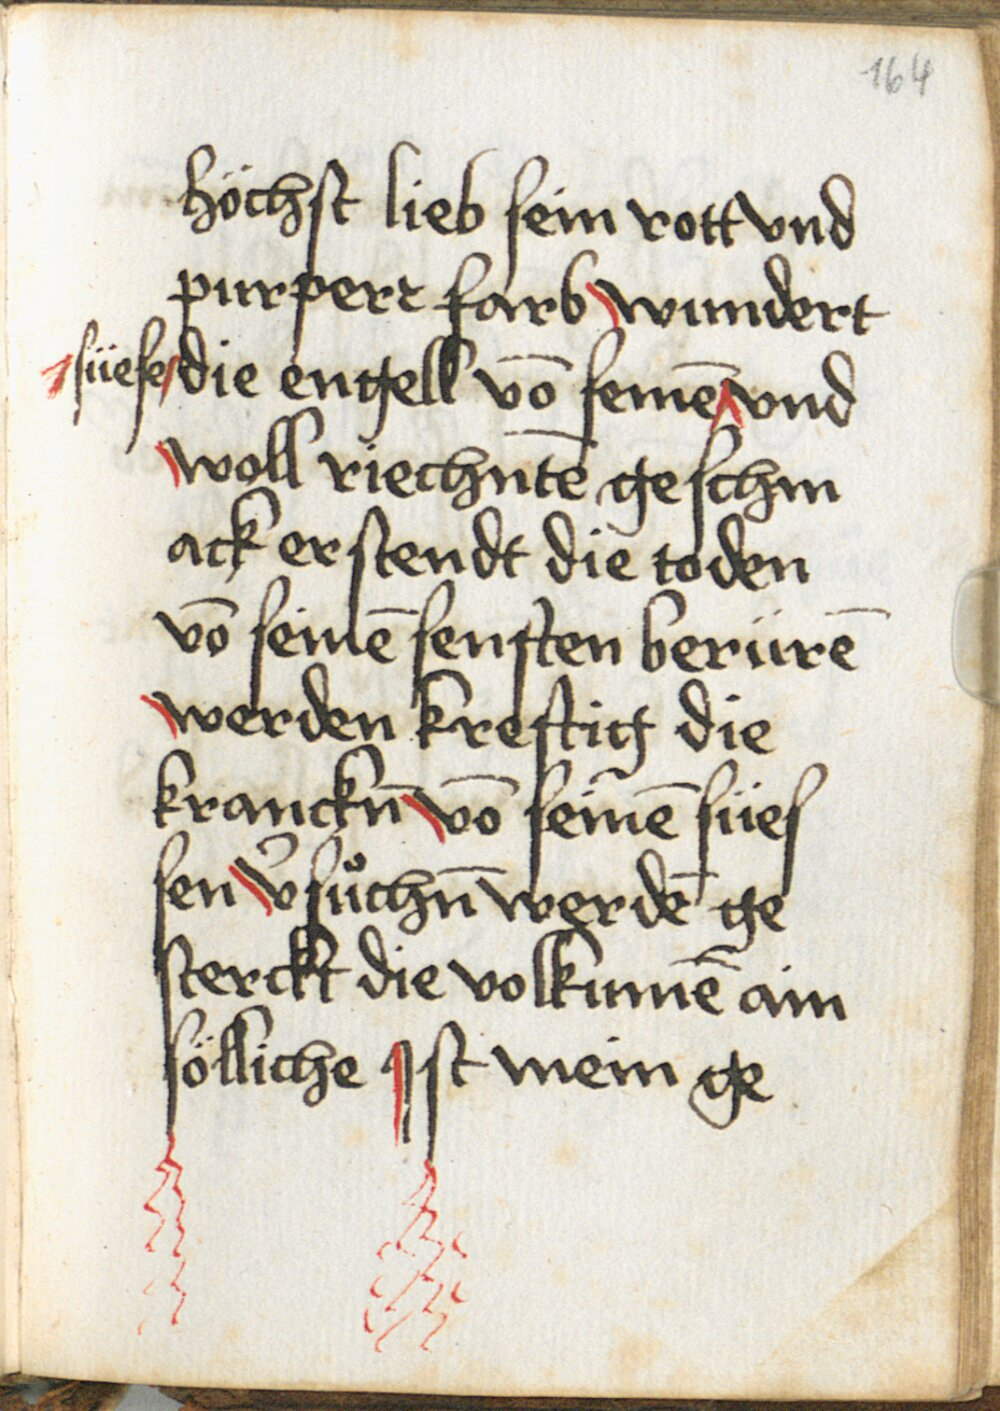 164
höchst lieb sein rott vnd
purpert farb wundert
süese die engell vō seinē vnd
woll riechntē geschm
ack erstendt die toden
vō seinē senften berürē
werden kreftig die
kranckn̄ vō seinē sües
sen v̄sůchn̄ werdē ge
sterckt die volkumē ain
sölliche Ist mein ge